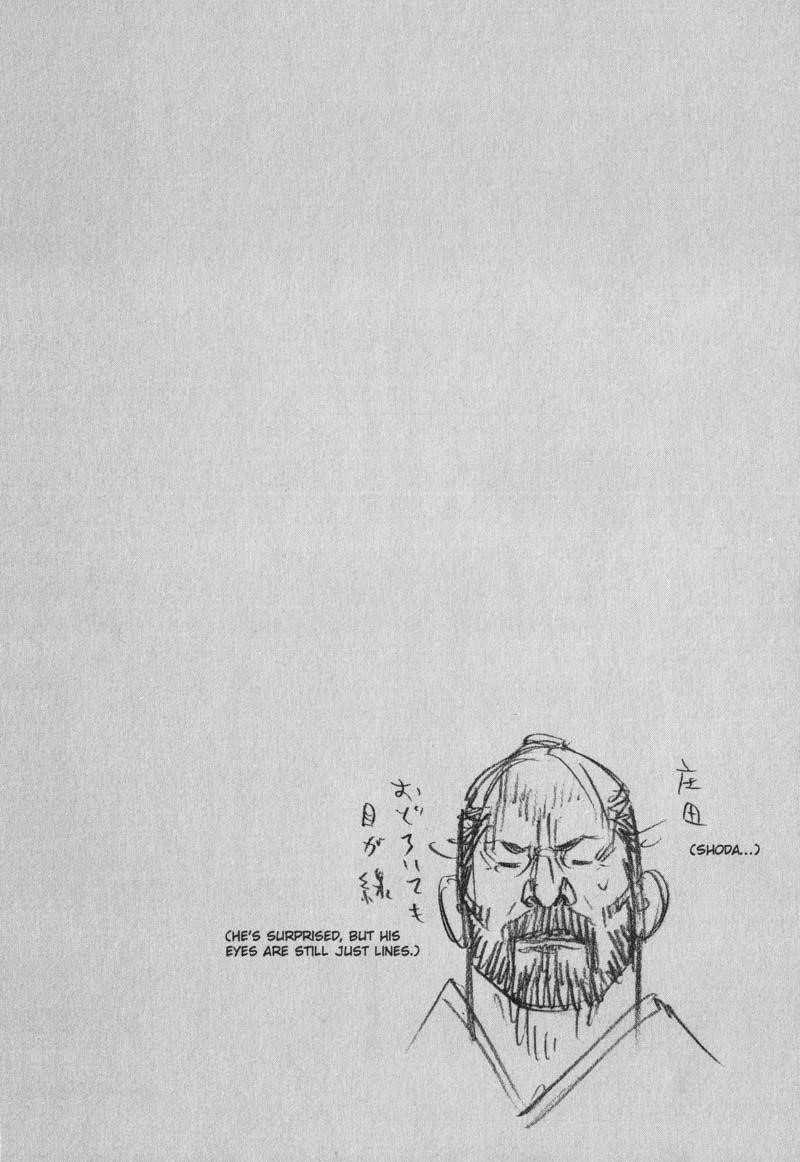 庄田
(SHODA...)
おどろいても
目が線
(HE'S SURPRISED, BUT HIS
EYES ARE STILL JUST LINES.)